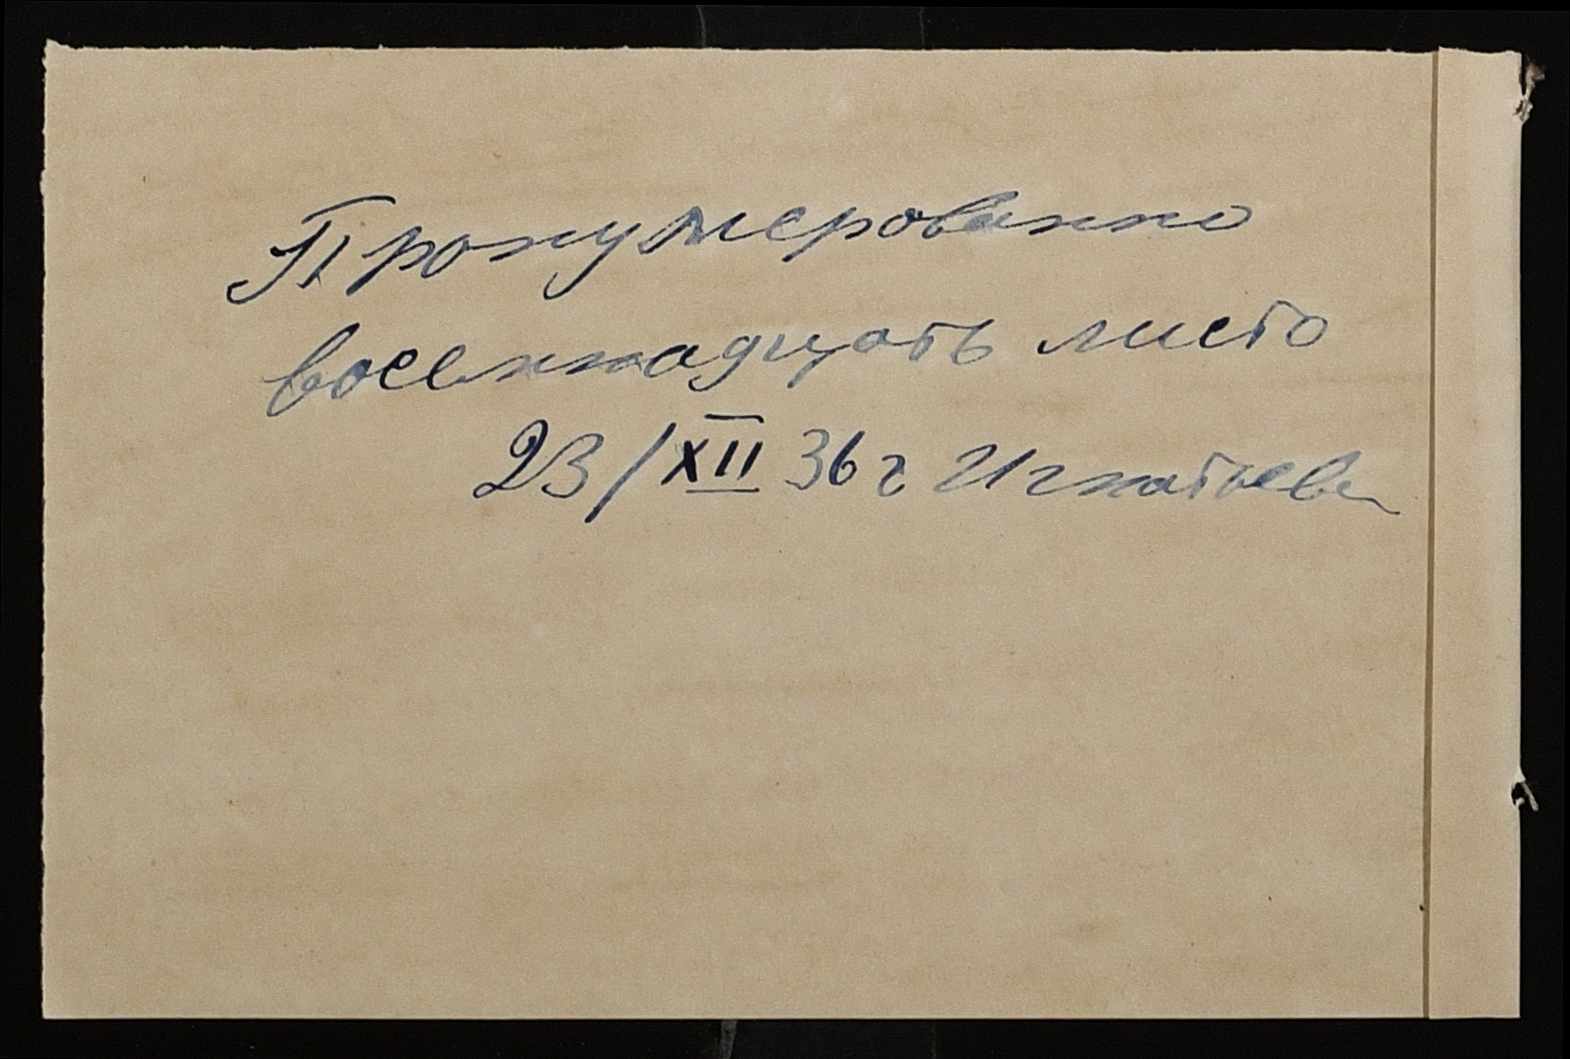 Пронумерованно
восемнадцать листо
23/XII 36 г Игнатьев